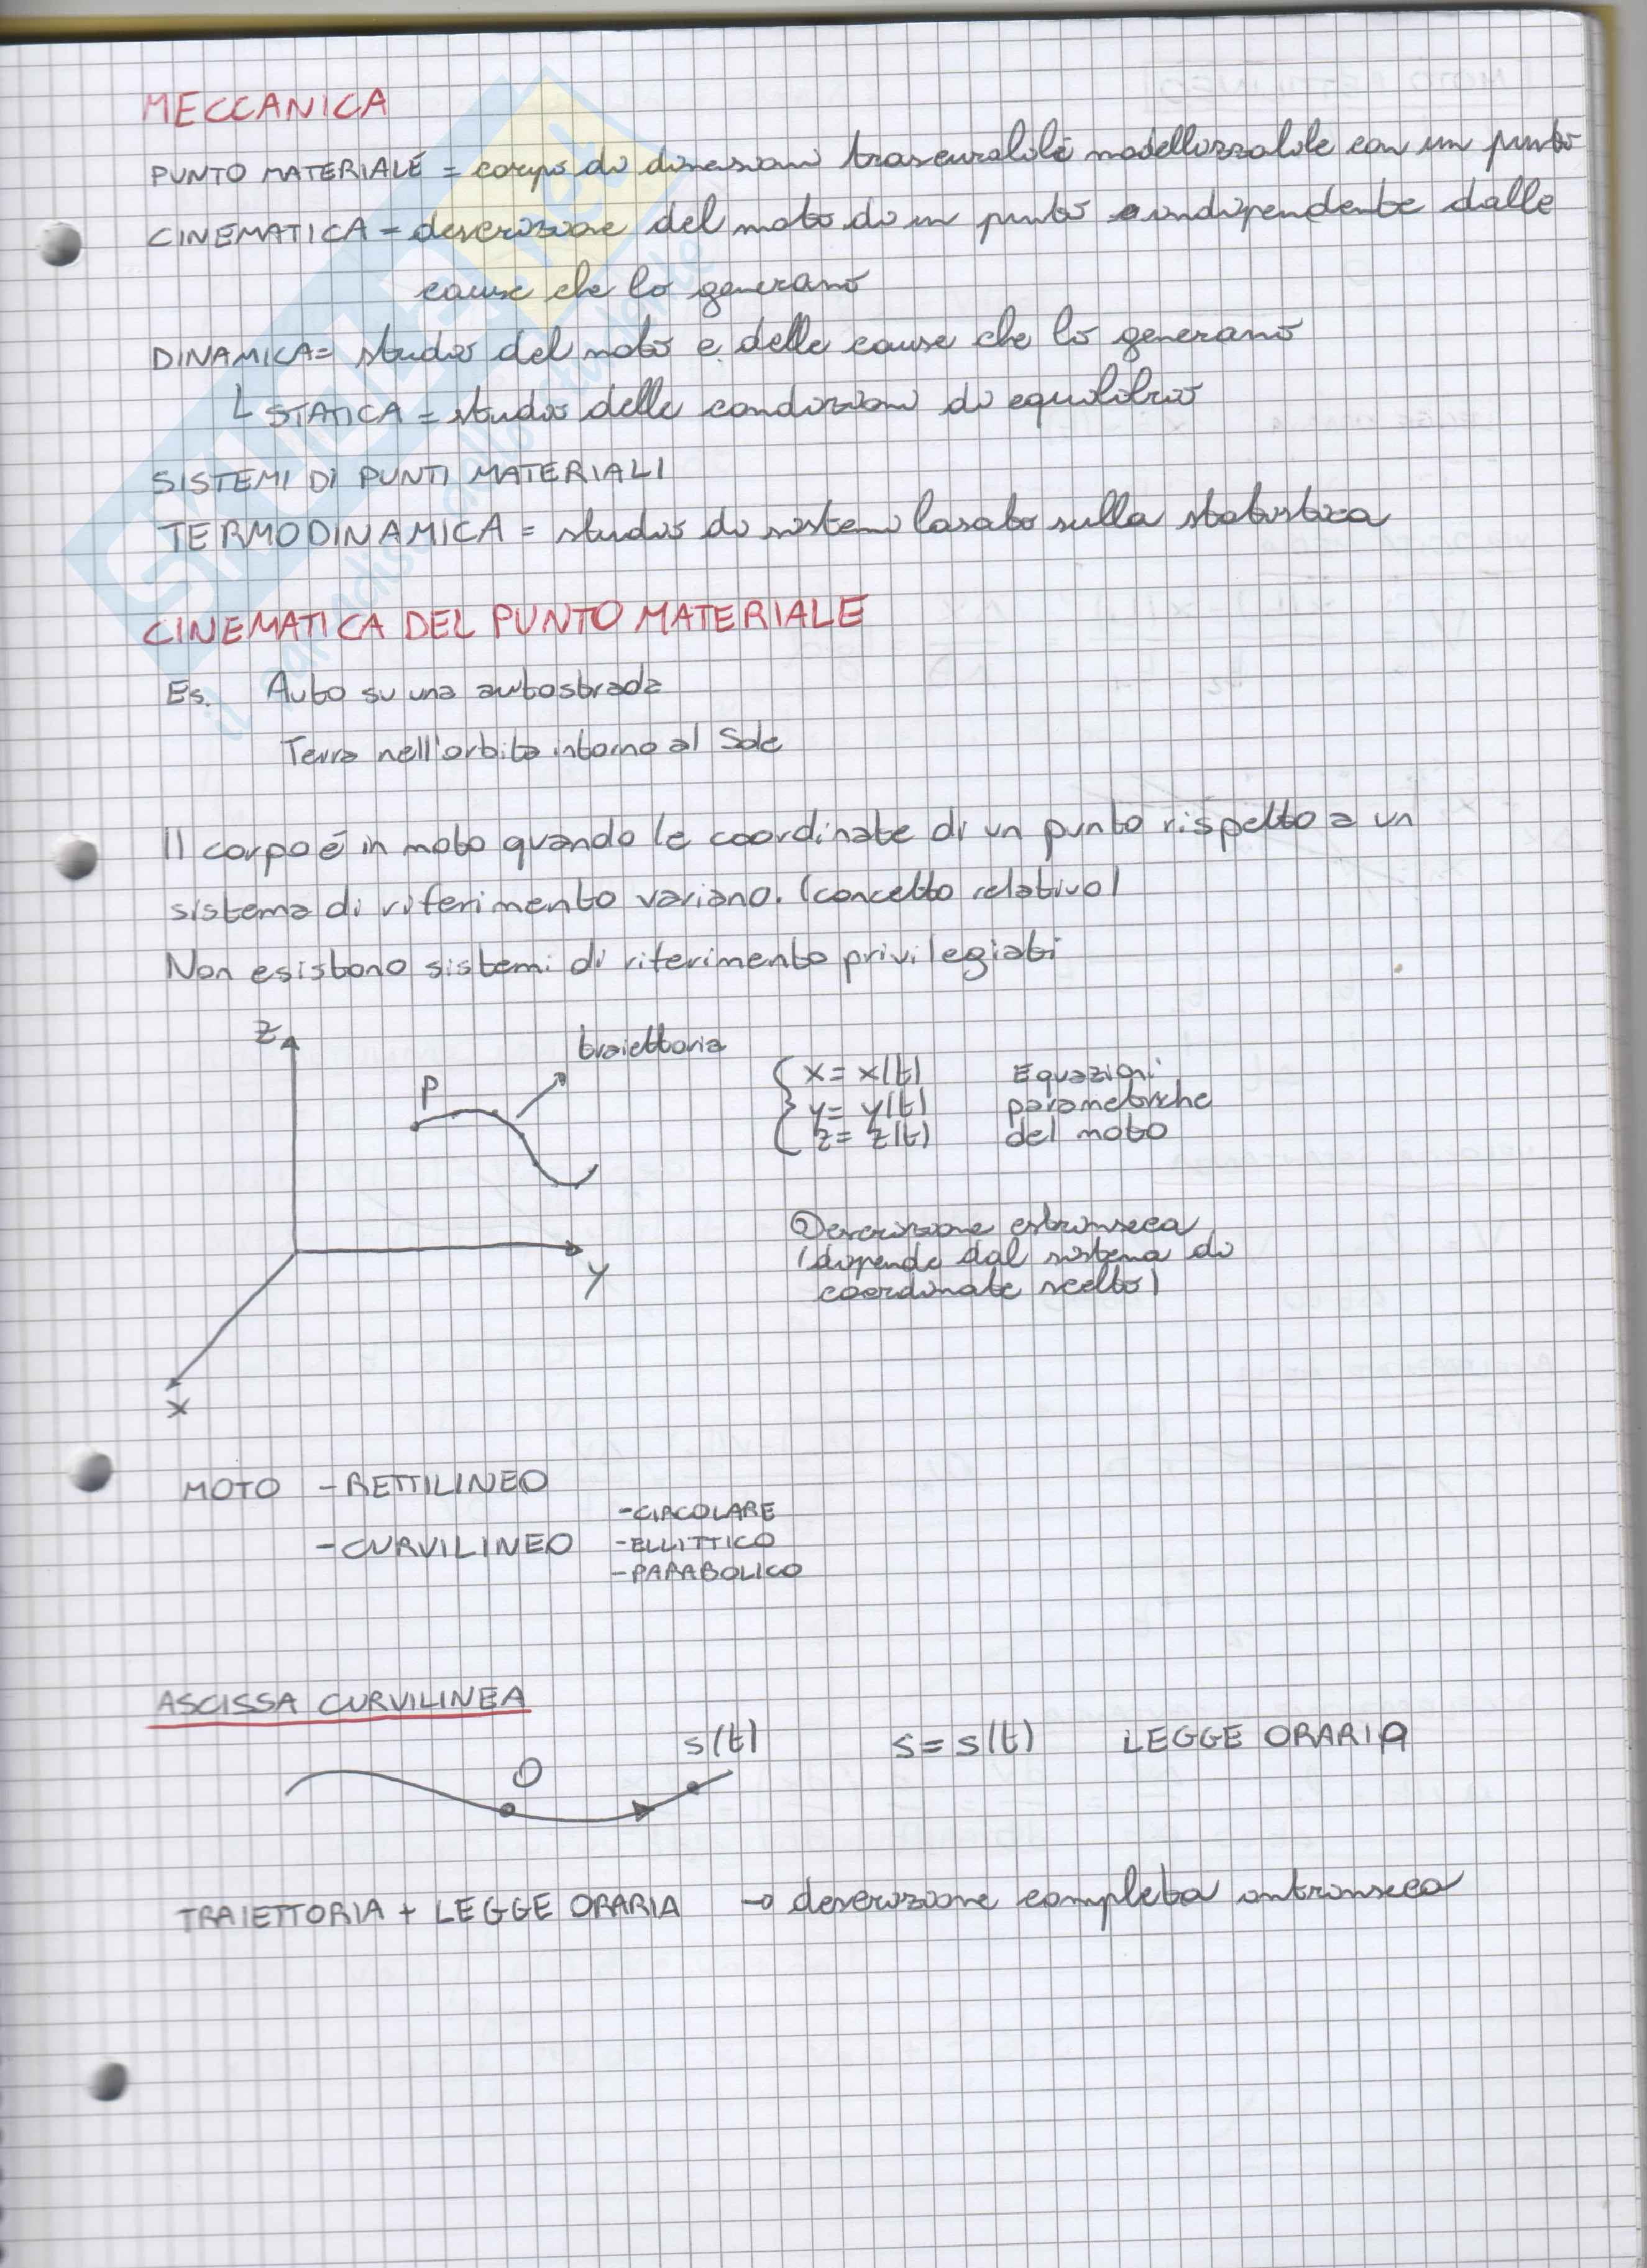 MECCANICA
PUNTO MATERIALE = corpo di dimensioni trascurabili modellizzabile con un punto
CINEMATICA = descrizione del moto di un punto indipendente dalle
cause che lo generano
DINAMICA = studio del moto e delle cause che lo generano
STATICA = studio delle condizioni di equilibrio
SISTEMI DI PUNTI MATERIALI
TERMODINAMICA = studio di sistemi basato sulla statistica
CINEMATICA DEL PUNTO MATERIALE
Es. Auto su una autostrada
Terra nell'orbita intorno al Sole
Il corpo é in moto quando le coordinate di un punto rispetto a un
sistema di riferimento variano. (concetto relativo)
Non esistono sistemi di riferimento privilegiati
Z
traiettoria
P
x = x(t) Equazioni
y = y(t) parametriche
z = z(t) del moto
Descrizione estrinseca
(dipende dal sistema di
coordinate scelto)
Y
X
MOTO - RETTILINEO
- CIRCOLARE
- CURVILINEO - ELLITTICO
- PARABOLICO
ASCISSA CURVILINEA
O s(t) s = s(t) LEGGE ORARIA
TRAIETTORIA + LEGGE ORARIA → descrizione completa intrinseca
SKUOLA.net
il paradiso dello studente